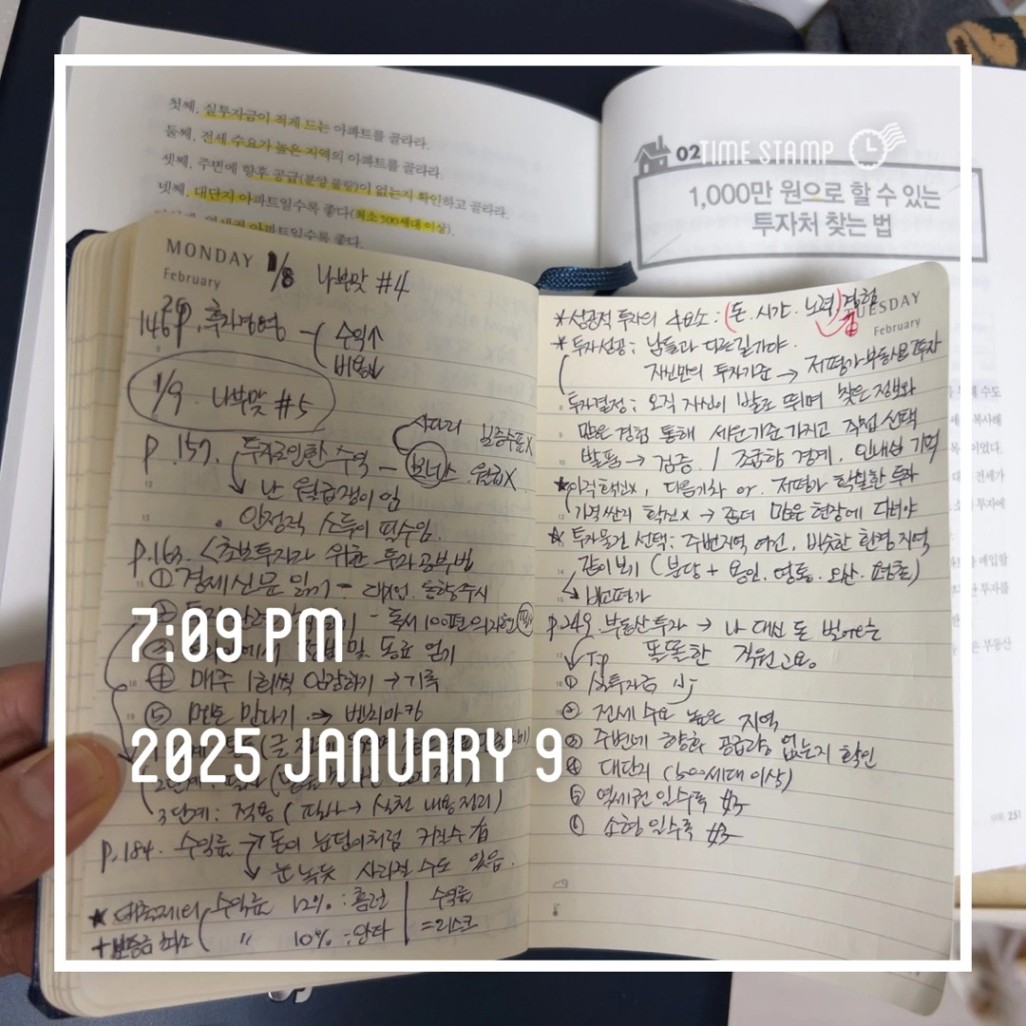 첫째, 실투자금이 적게 드는 아파트를 골라라.
둘째, 전세 수요가 높은 지역의 아파트를 골라라.
셋째, 주변에 향후 공급(분양 물량)이 없는지 확인하고 골라라.
넷째, 대단지 아파트일수록 좋다(최소 500세대 이상).
아파트일수록 좋다.
02
TIME STAMP
1,000만 원으로 할 수 있는
투자처 찾는 법
MONDAY 1/8 나부맛 #4
February
146P.
수익↑
비용↓
1/9. 나부맛 #5
p.157. 투자로인한 수익 - 보너스 월급X
난 월급쟁이 임
안정적 소득이 필수임
p.163. <초보투자자 위한 투자공부법
① 경제신문 읽기 -
- 독서 100권
④ 매주 1회씩 임장하기 → 기록
⑤ 멘토 만나기 → 벤치마킹
3단계: 적용 (필사 → 실천 내용정리)
p.184. 수익률 돈이 눈덩이처럼 커질수 有
눈 녹듯 사라질 수도 있음.
수익률 12% : 홈런
수익률
" 10% : 안타
= 리스크
TUESDAY
February
*성공적 투자의 4요소: (돈. 시간. 노력) 경험
*투자성공: 남들과 다른길가야.
자신만의 투자기준 → 저평가 부동산 투자
투자결정: 오직 자신이 발로 뛰며 찾은 정보와
많은 경험 통해 세운기준 가지고 직접 선택
발품 → 검증. / 조급함 경계. 인내심 기억
다음기차 or. 저평가 확실한 투자
확신X → 좀더 많은 현장에 다녀야
*투자물건 선택: 주변지역 여건, 비슷한 환경 지역
같이보기 (분당 + 용인. 영통. 오산. 평촌)
비교평가
p.249. 부동산투자 → 나 대신 돈 벌어오는
똘똘한 직원 고용.
Tip
① 실투자금 小
② 전세 수요 높은 지역
③ 주변에 향후 공급량 없는지 확인
④ 대단지 (500세대 이상)
⑤ 역세권 일수록 好
⑥ 소형일수록 好
7:09 PM
2025 JANUARY 9
251